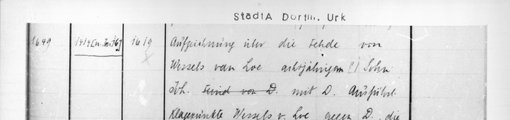 Stadt A Dortm. Urk
1649 1619 Aufzeichnung über die Fehde von
Wessels van Loe achtjährigen (!) Sohn
Joh. Frind von D. mit D. Ausführl.
Klagepunkte Wessels v. Loe gegen D. die